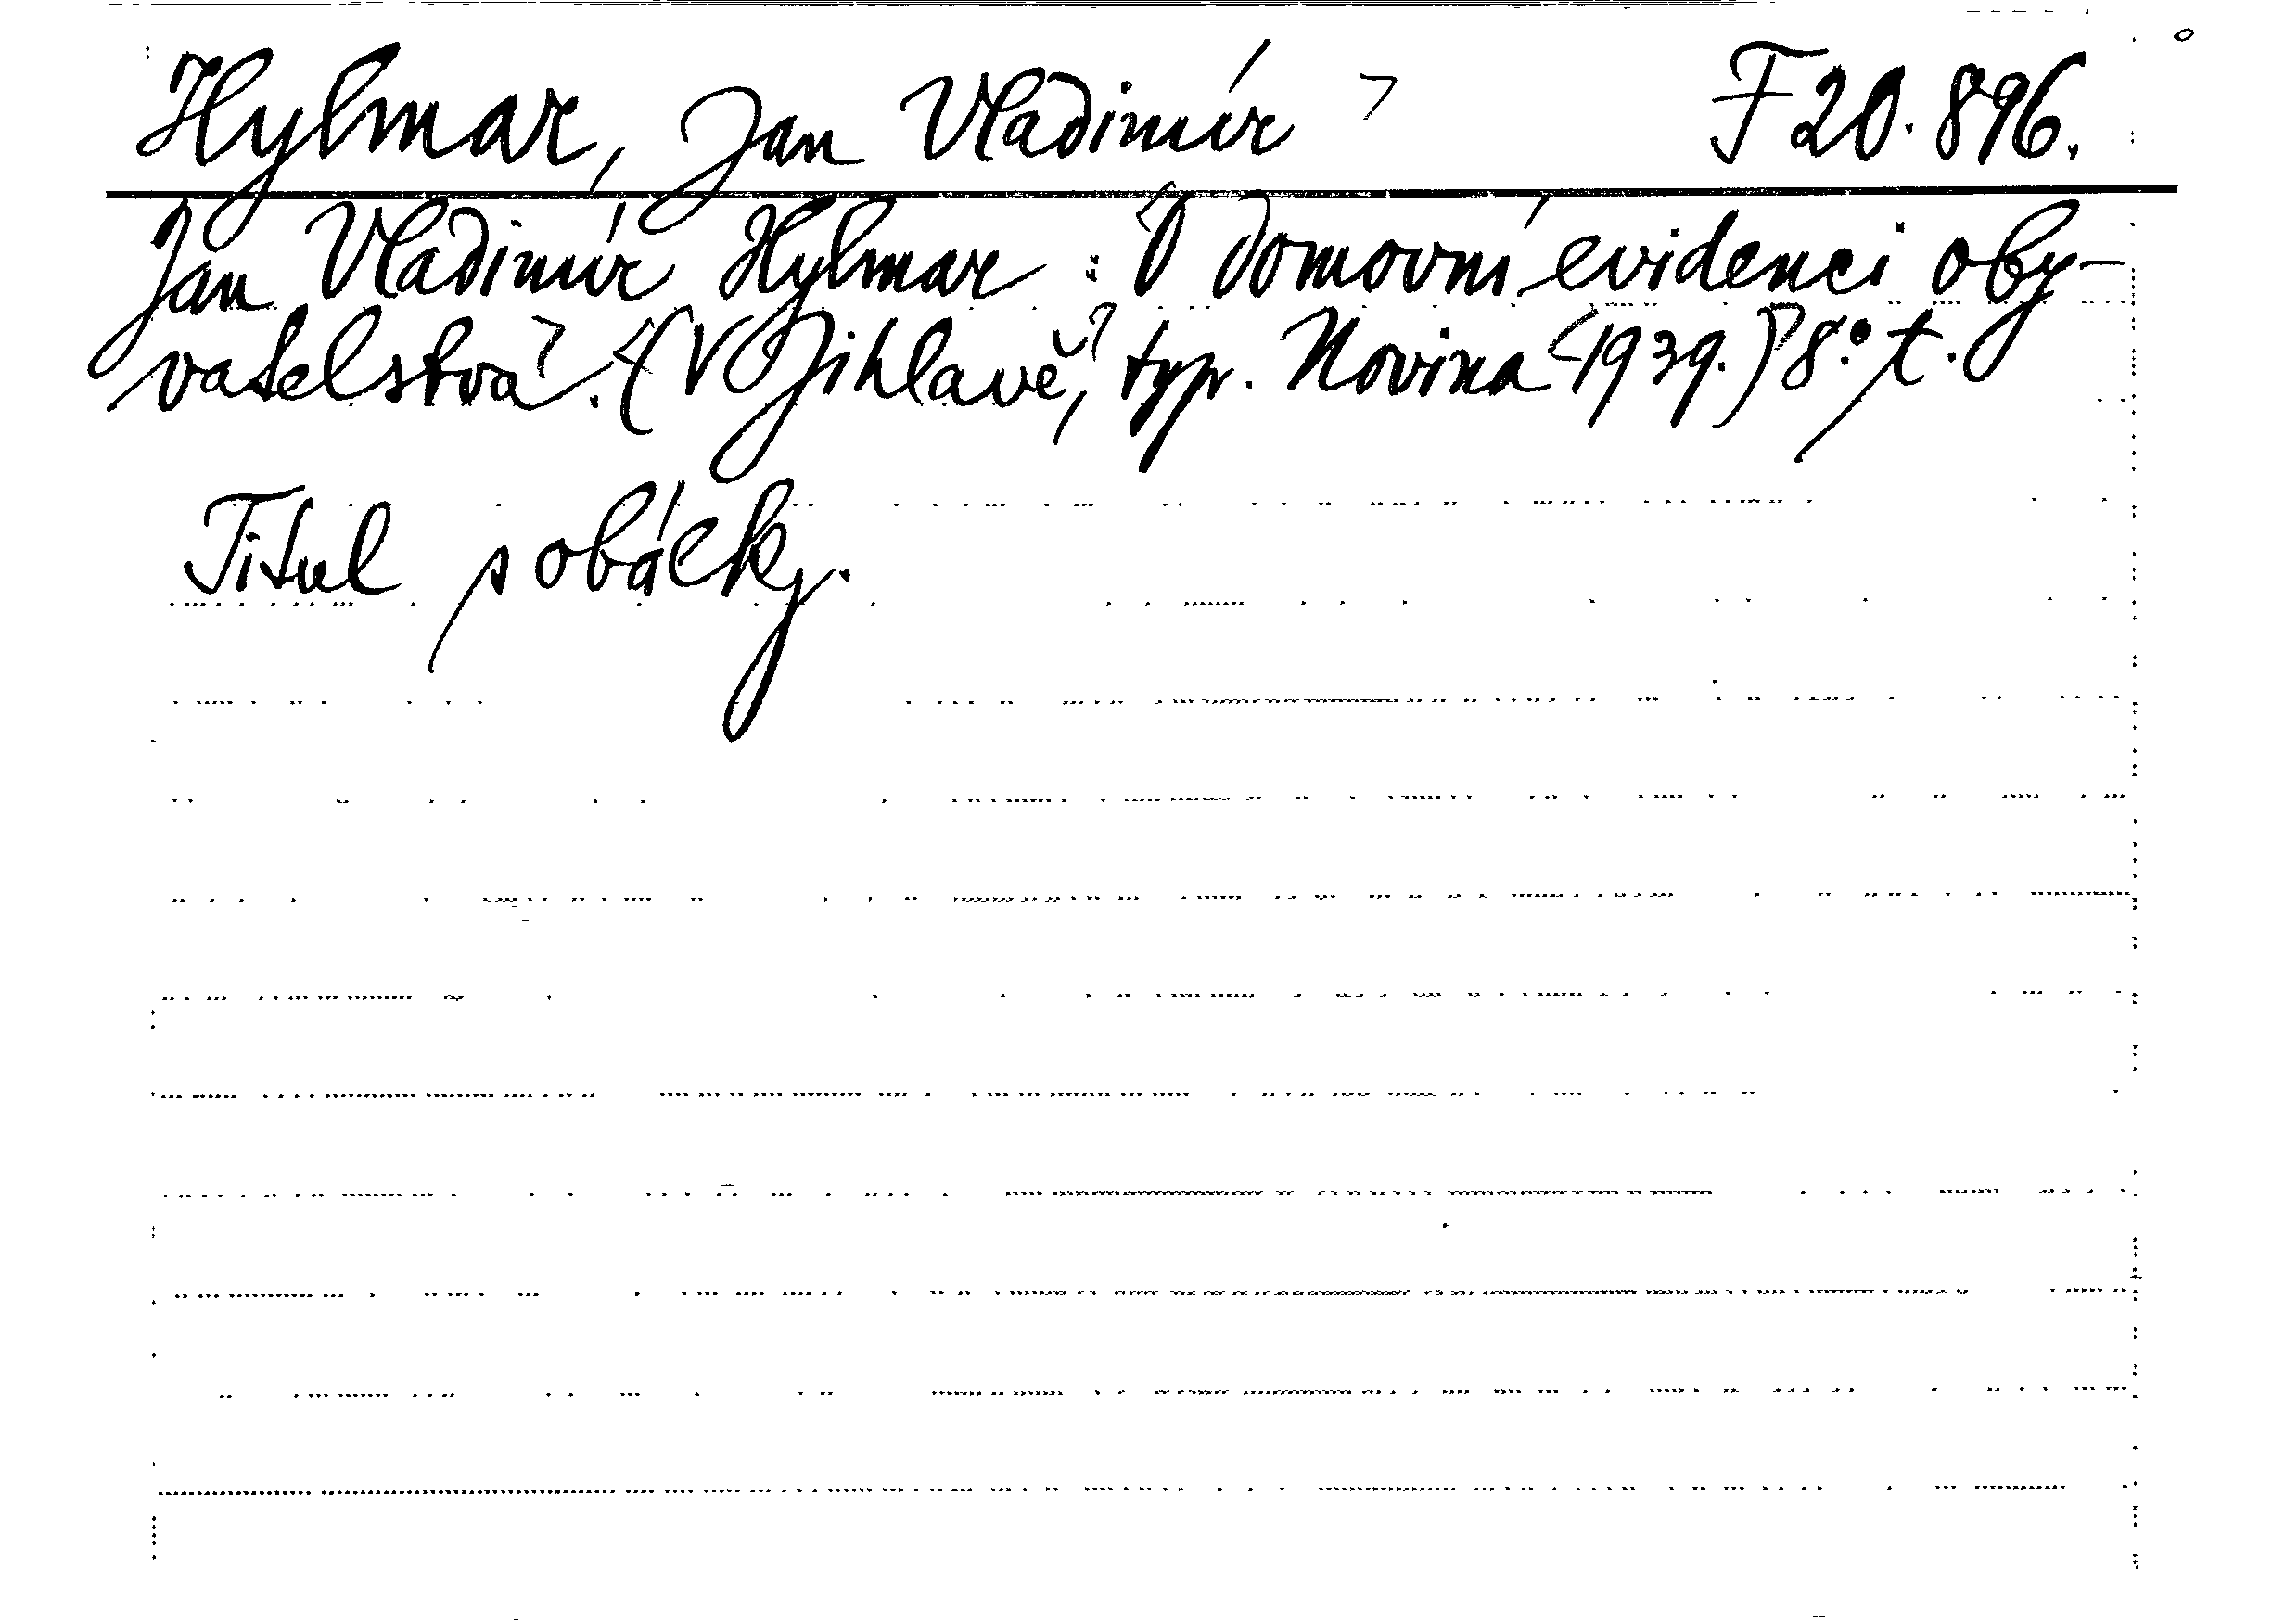 Hylmar, Jan Vladimír F 20.896.
Jan Vladimír Hylmar : O domovní evidenci oby-
vatelstva. (V Jihlavě, typ. Novina 1939.) 8°. t.
Titul s obálky.